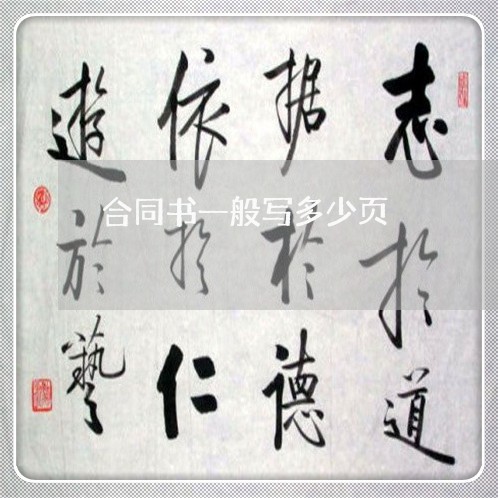 志於道
据於德
依於仁
遊於藝
合同书一般写多少页